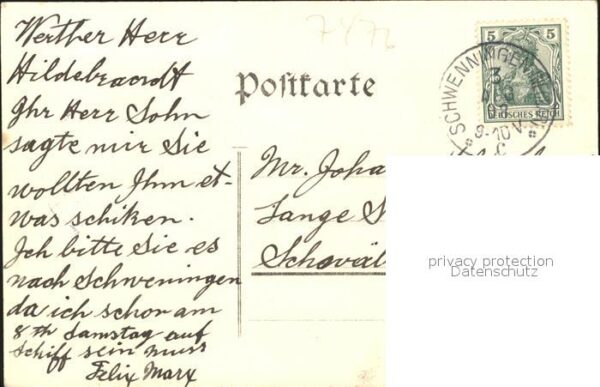 Werther Herr
Hildebrandt
Ihr Herr Sohn
sagte mir Sie
wollten Ihm et-
was schiken.
Ich bitte Sie es
nach Schweningen
da ich schon am
8th Samstag auf
Schiff sein muss
Felix Marx
74/76
Postkarte
5 5
DEUTSCHES REICH
SCHWENNINGEN
3
AUG
07
9-10 V.
* C *
Mr. Joha
Lange S
Schwäb
privacy protection
Datenschutz